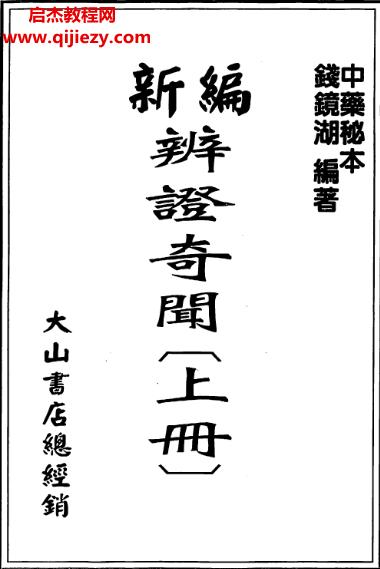 启杰教程网
www.qijiezy.com
中藥秘本
錢鏡湖 編著
新編
辨證奇聞〔上冊〕
大山書店總經銷